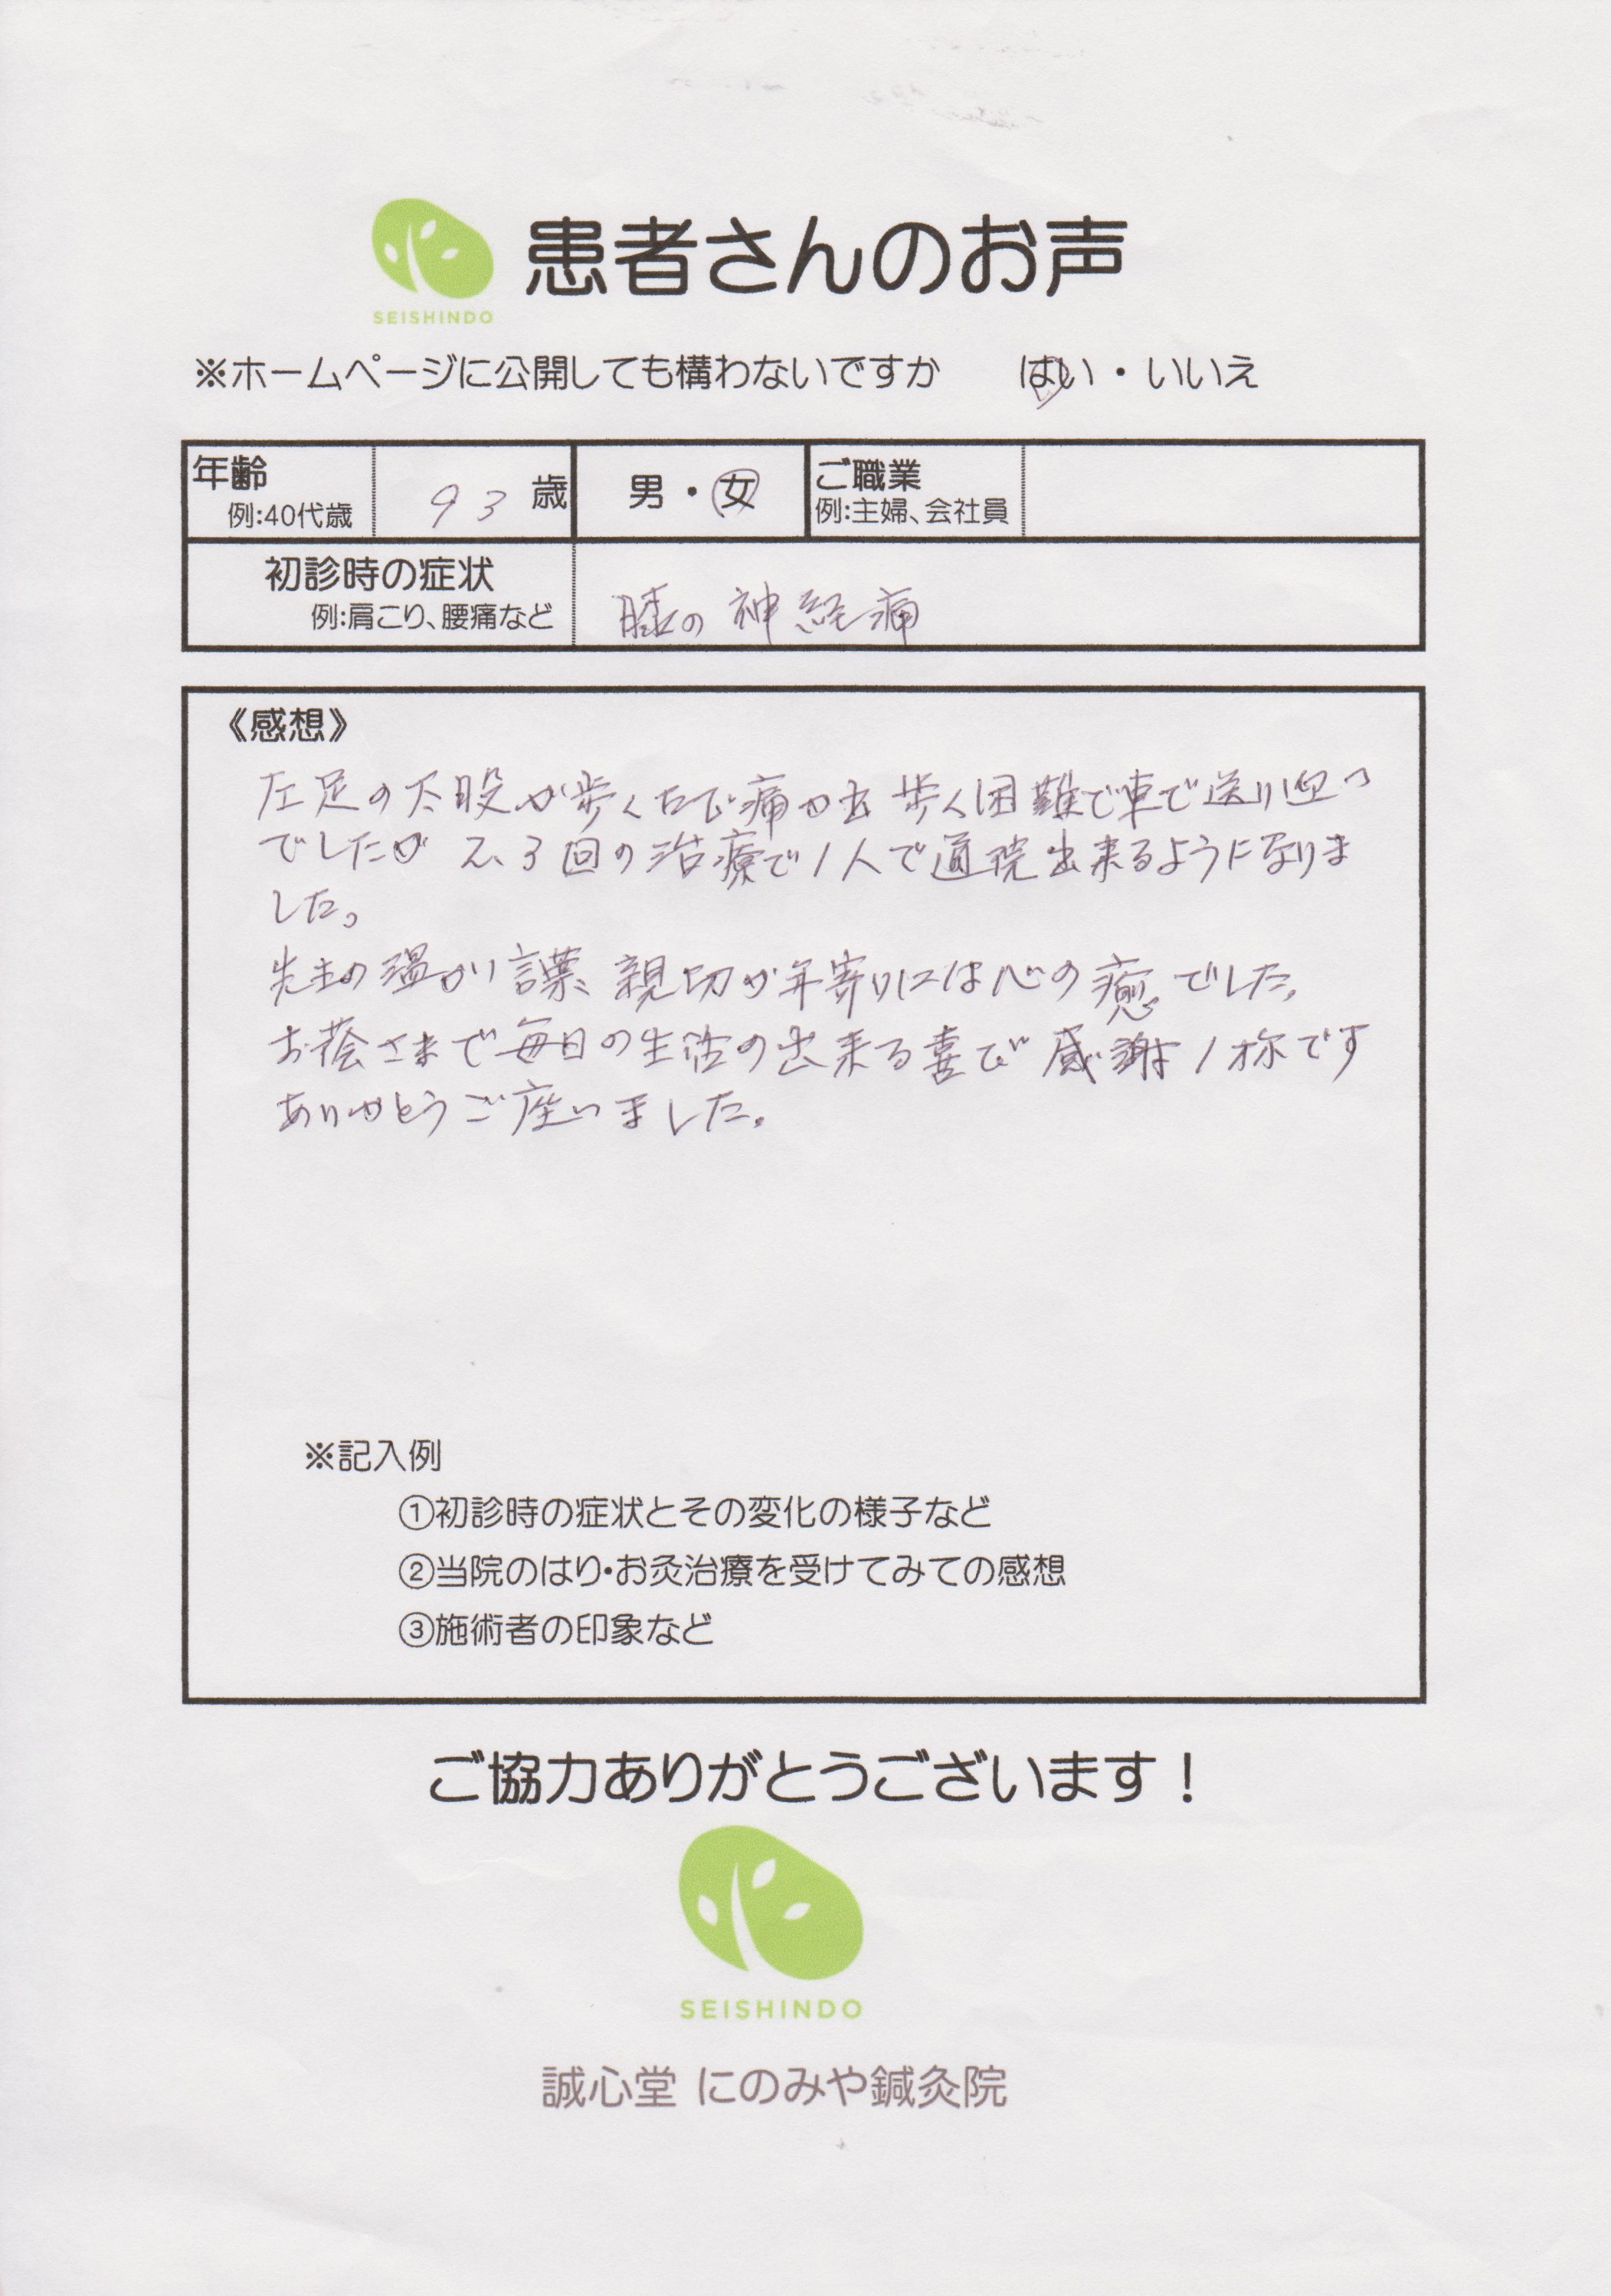 SEISHINDO
患者さんのお声
※ホームページに公開しても構わないですか はい・いいえ
年齢 93 歳 男・女 ご職業
例:40代歳 例:主婦、会社員
初診時の症状 膝の神経痛
例:肩こり、腰痛など
《感想》
左足の太股が歩く 痛が出 歩く困難で車で送り迎い
でしたが 2、3回の治療で1人で通院出来るようになりま
した。
先生の温かい言葉、親切が年寄りには心の癒でした。
お蔭さまで毎日の生活の出来る喜び 感謝ノ
ありがとうご座いました。
※記入例
①初診時の症状とその変化の様子など
②当院のはり・お灸治療を受けてみての感想
③施術者の印象など
ご協力ありがとうございます！
SEISHINDO
誠心堂 にのみや鍼灸院